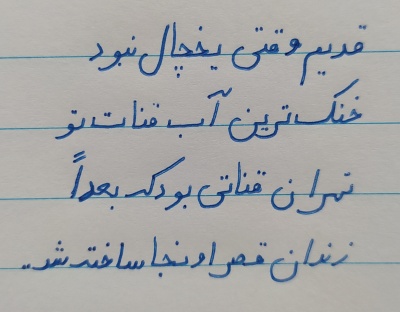 قدیم وقتی یخچال نبود
خنک‌ترین آب قنات تو
تهران قناتی بود که بعداً
زندان قصر اونجا ساخته شد.